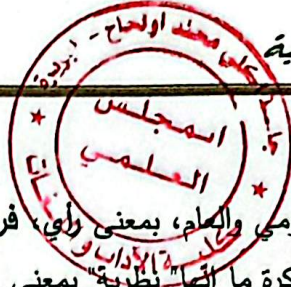 ية
جامعة اكلي محند اولحاج - البويرة
المجلس
العلمي
كلية الآداب واللغات
ومي والعام، بمعنى رأي، فر
كرة ما انها "نظرية" بمعنى